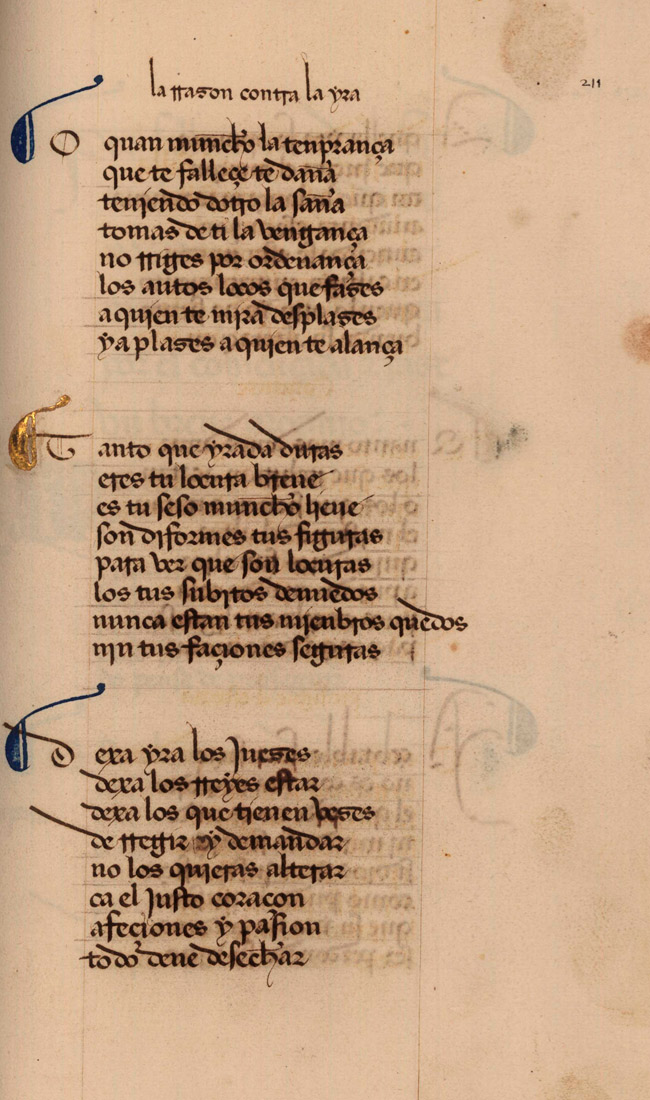 la rrason contra la yra
211
O quan muncho la tenprança
que te falleçe te daña
teniendo dotro la saña
tomas de ti la vengança
no rriges por ordenança
los autos locos que fases
a quien te mira desplases
y a plases a quien te alança
Tanto que yrada duras
eres tu locura breue
es tu seso muncho lieue
son diformes tus figuras
para ver que son locuras
los tus subitos denuedos
nunca estan tus mienbros quedos
nin tus façiones seguras
Dexa yra los jueses
dexa los rreyes estar
dexa los que tienen veses
de rregir y demandar
no los quieras alterar
ca el justo coraçon
afeciones y pasion
todo deue desechar